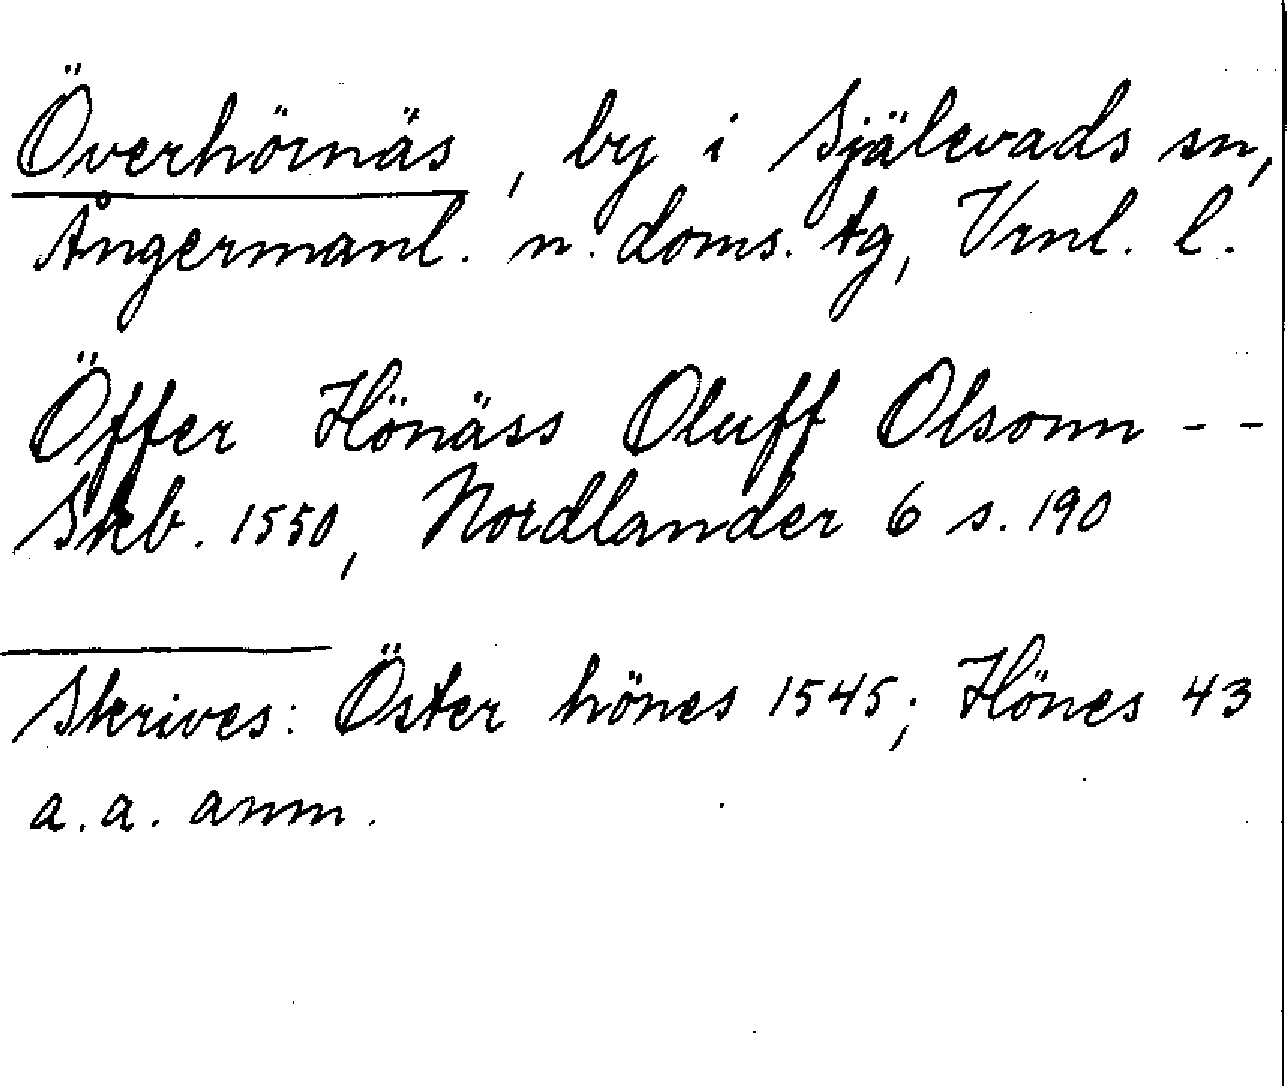 Överhörnäs, by i Själevads sn,
Ångermanl. n. doms. tg, Vrnl. l.
Öffer Hönäss Oluff Olsonn - -
Skb. 1550, Nordlander 6 s. 190
Skrives: Öster hönes 1545; Hönes 43
a.a. anm.